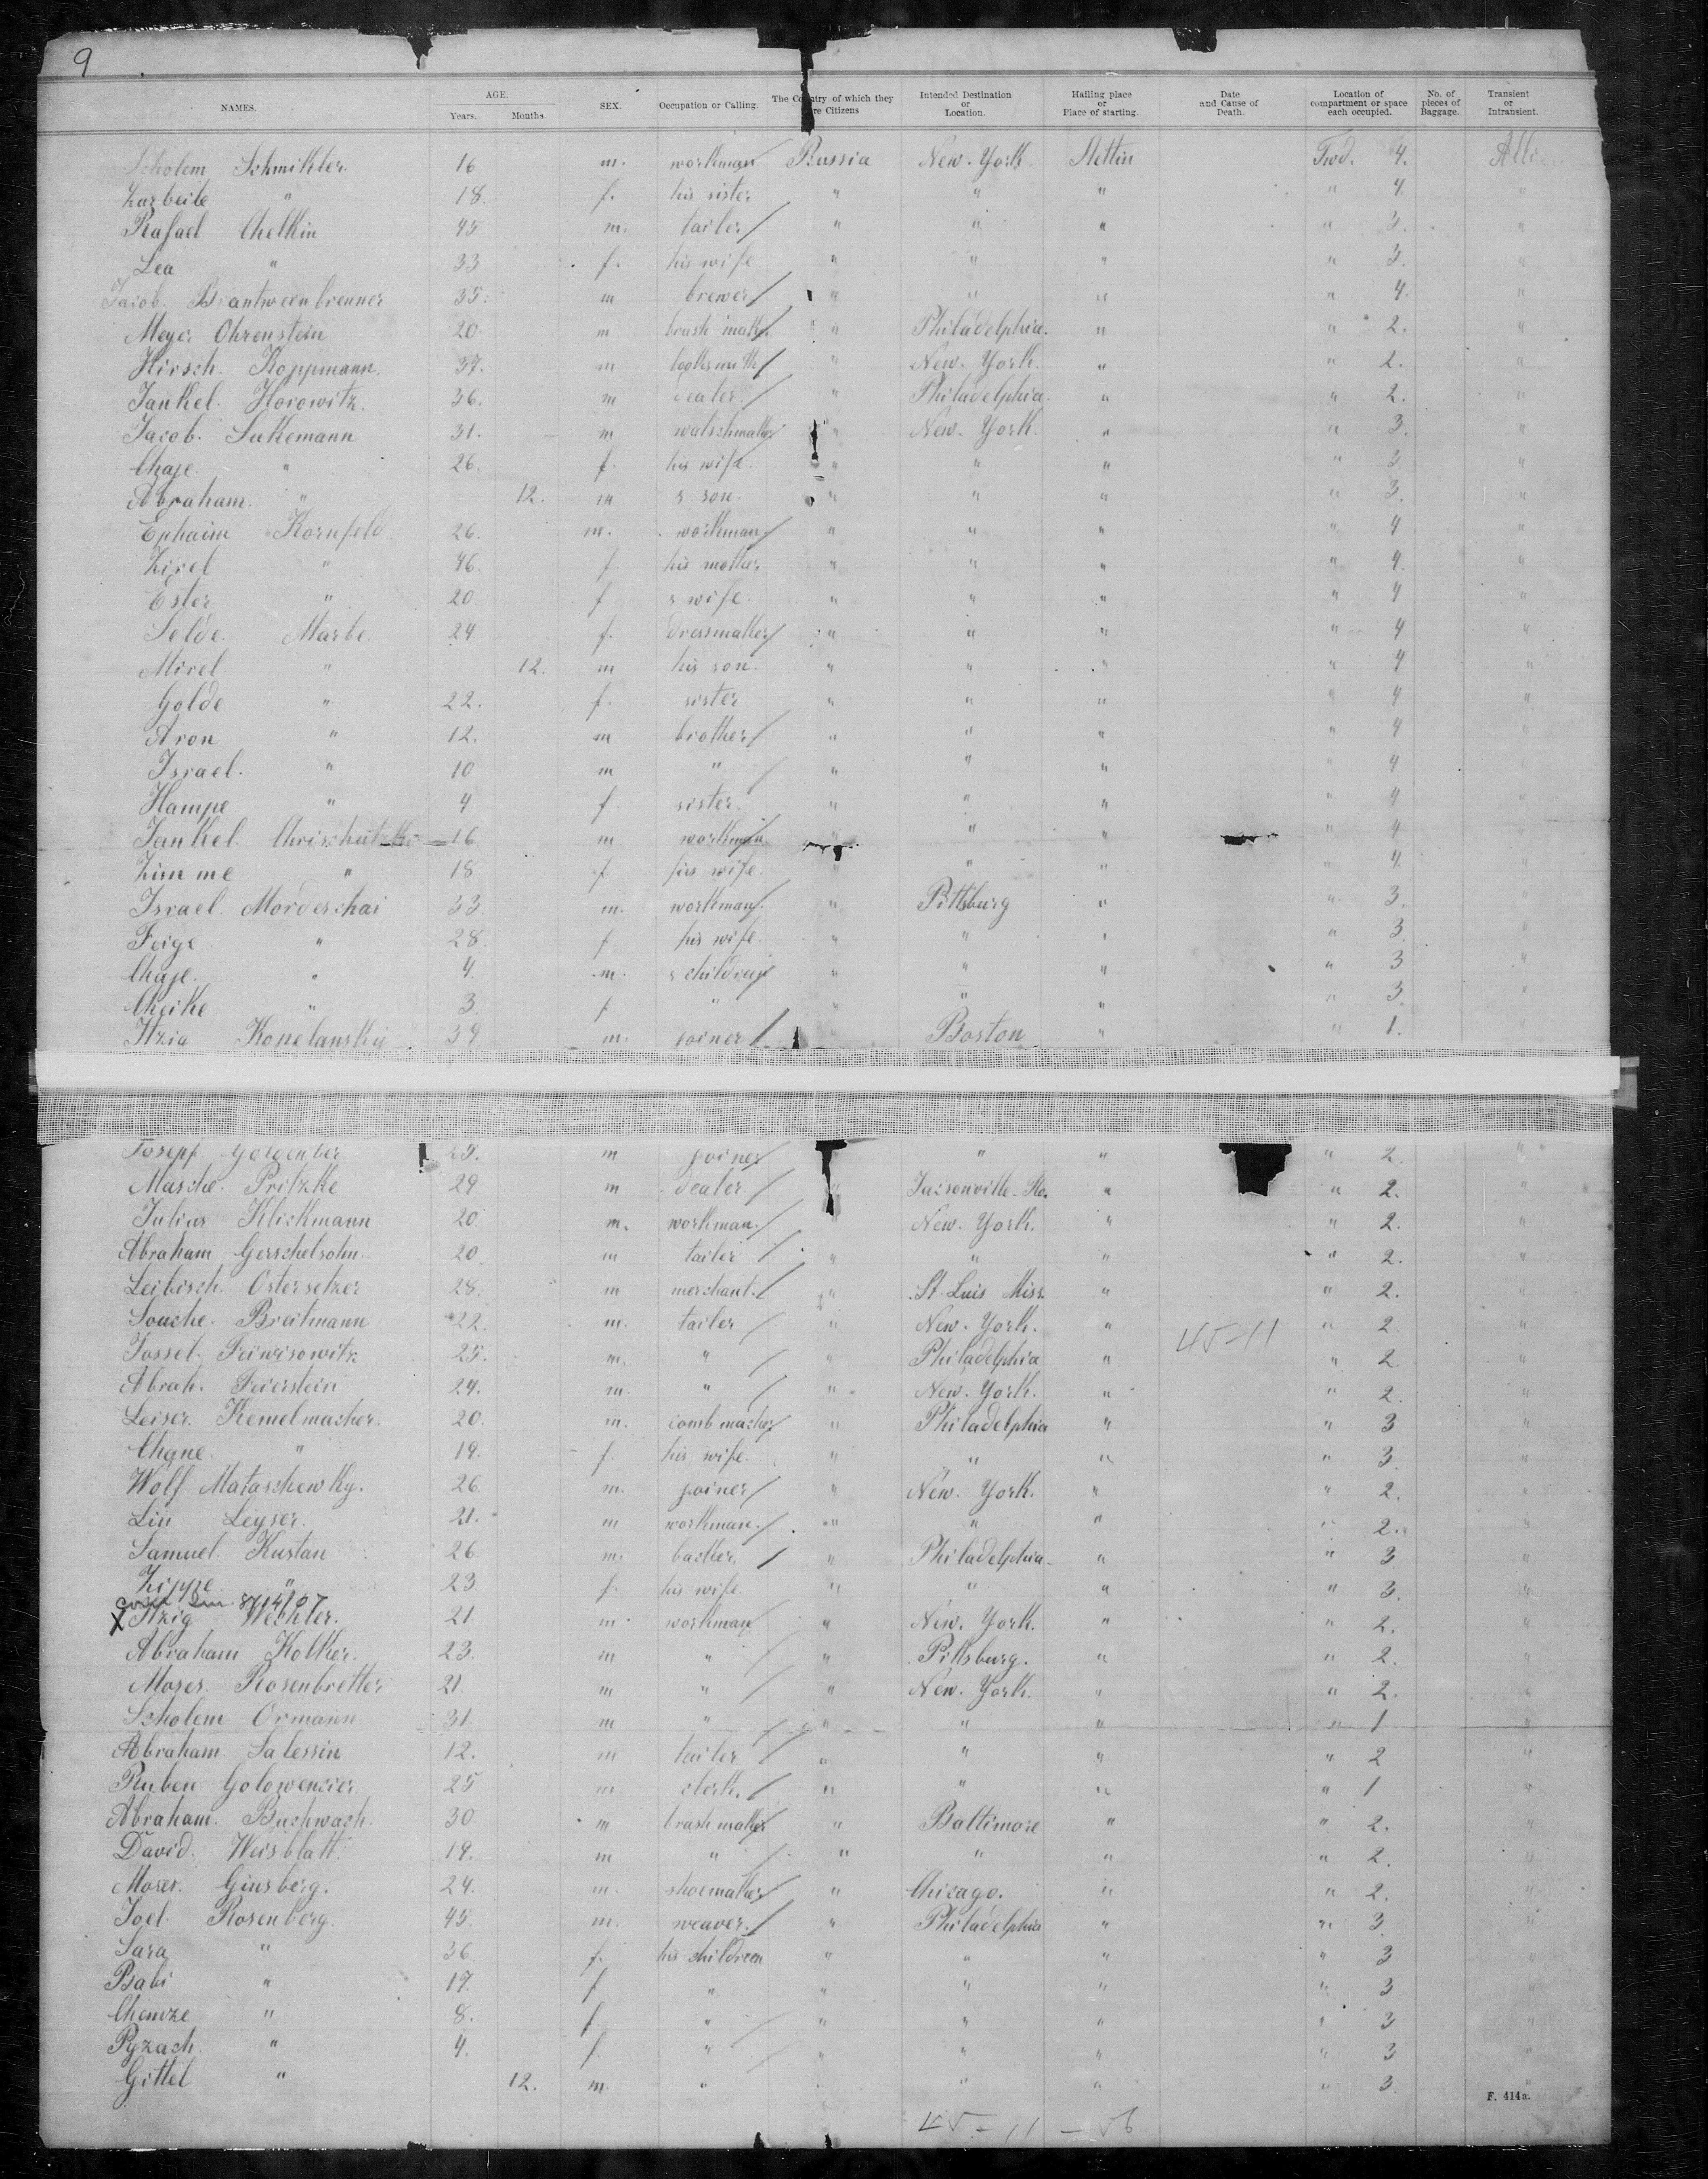 9
NAMES. AGE. Years. Months. SEX. Occupation or Calling. The Country of which they are Citizens Intended Destination or Location. Hailing place or Place of starting. Date and Cause of Death. Location of compartment or space each occupied. No. of pieces of Baggage. Transient or Intransient.
Scholem Schmikler. 16 m. workman Russia New-York. Stettin Twd. 4.
" 18. f. his sister " " " " 4. "
Rafael Chelkin 45 m. tailer " " " " 3. "
Lea " 33 f. his wife " " " " 3. "
Jacob. Brantweenbrenner 35. m brewer " " " " 4. "
Meyer Ohrenstein 20. m brush maker " Philadelphia. " " 2. "
Hirsch. Koppmann. 37. m " New-York. " " 2. "
Jankel. Horowitz. 36. m dealer. " Philadelphia. " " 2. "
Jacob. Sukemann 31. m watschmaker " New-York. " " 3. "
Chaje. " 26. f. his wife. " " " " 3. "
Abraham. " 12. m s son. " " " " 3. "
Ephaim Kornfeld. 26. m. workman. " " " " 4 "
Zisel " 46. f. his mother " " " " 4. "
Ester " 20. f s wife. " " " " 4 "
Selde. Marbe. 24 f. dressmaker " " " " 4 "
Mirel. " 12. m his son. " " " " 4 "
Golde " 22. f. sister " " " " 4 "
Aron " 12. m brother " " " " 4 "
Israel. " 10 m " " " " " 4 "
Hampe " 4 f. sister. " " " " 4 "
Jankel. 16 m workman " " " 4 "
Zimme " 18 f his wife. " " " " 4. "
Israel Mordeschai 33. m. workman. " Pittsburg " " 3. "
Feige. " 28. f. his wife. " " " " 3. "
Chaje. " 4. m. s children " " " " 3 "
Cheike " 3. f " " " " " 3. "
Itzig Konelansky 39. m. joiner " Boston " " 1. "
Josepf 25. m joiner " " " 2. "
Masche. Pritzke 29 m dealer. " " " 2. "
Julius Klickmann 20. m. workman. New-York. " " 2. "
Abraham Gerschelsohn. 20. m tailer " " " " 2. "
Leibisch. Ostersetzer 28. m merchant. " St. Luis Miss. " " 2. "
Souche. Breitmann 22. m. tailer " New-York. " " 2. "
Jossel. Feiwisowitz 25. m. " " Philadelphia " 45-11 " 2. "
Abrah. Feierstein 24. m. " " New-York. " " 2. "
Leiser. Kemelmacher. 20. m. comb macher " Philadelphia " " 3 "
Chane. " 19. f. his wife. " " " " 3. "
Wolf Mataschewky. 26. m. joiner " New-York. " " 2. "
Lin Leyser. 21. m workman. " " " " 2. "
Samuel. Kustan 26 m. backer. " Philadelphia- " " 3 "
Zippe " 23. f. his wife. " " " " 3. "
X Itzig Wechter. 21. m workman " New-York. " " 2. "
Abraham Kolker. 23. m " " Pittsburg. " " 2. "
Moses. Rosenbretter 21. m " " New-York. " " 2. "
Scholem Ormann 31. m " " " " " 1 "
Abraham. Salessin 12. m tailer " " " " 2 "
Ruben Golowencier 25 m clerk. " " " " 1 "
Abraham. Buchwach. 30. m brush maker " Baltimore " " 2. "
David. Weisblatt. 19. m " " " " " 2. "
Moses. Ginsberg. 24. m. shoemaker " Chicago. " " 2. "
Joel. Rosenberg. 45. m. weaver. " Philadelphia " " 3. "
Sara " 36. f. his children " " " " 3 "
Babi " 17. f " " " " " 3 "
Chemze " 8. f. " " " " " 3 "
Pyzach. " 4. f. " " " " " 3 "
Gittel " 12. m. " " " " 3. "
F. 414a.
45-11-56